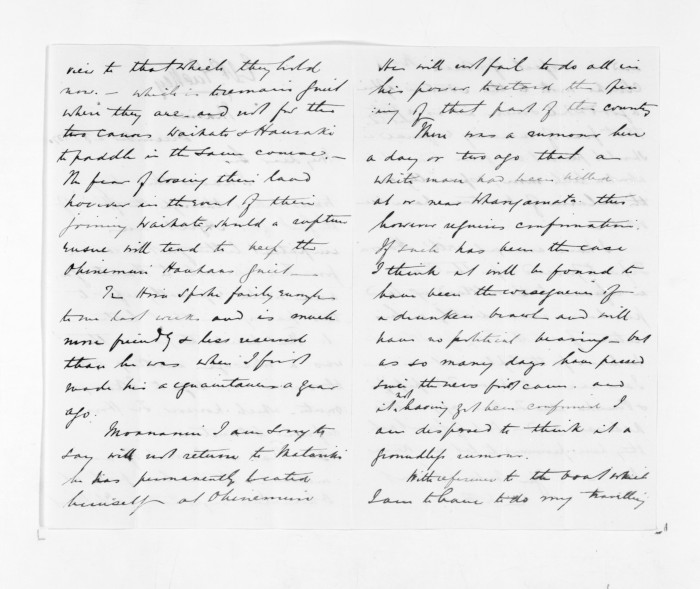 view to that which they hold
now. — which is to remain quiet
where they are and not for the
two canoes Waikato & Hauraki
to paddle in the same course. —
The fear of losing their land
however in the event of their
joining Waikato, should a rupture
ensue will tend to keep the
Ohinemuri Hauhaus quiet —
Te Hira spoke fairly enough
to me last week and is much
more friendly & less reserved
than he was when I first
made his acquaintance a year
ago.
Moananui I am sorry to
say will not return to Matariki
he has permanently located
himself at Ohinemuri
He will not fail to do all in
his power to retard the open
ing of that part of the country
There was a rumour here
a day or two ago that a
white man had been killed
at or near Whangamata this
however requires confirmation.
If such has been the case
I think it will be found to
have been the consequence of
a drunken brawl and will
have no political bearing — but
as so many days have passed
since the news first came and
it not having yet been confirmed I
am disposed to think it a
groundless rumour.
With reference to the boat which
I am to have to do my travelling